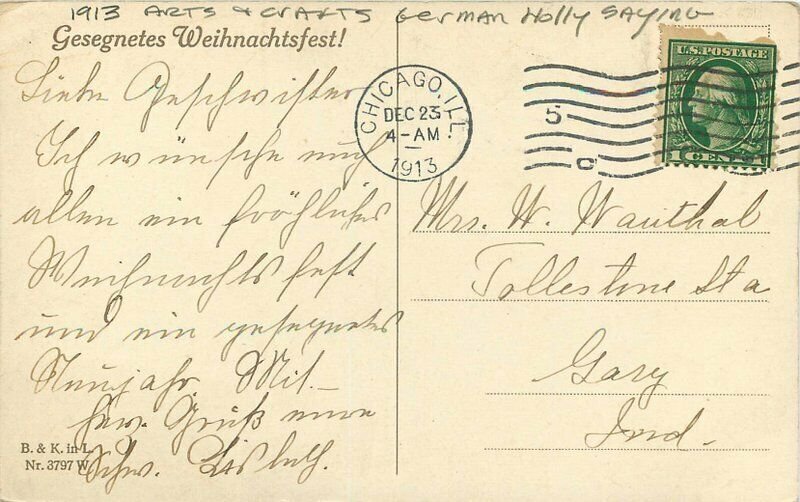 1913 ARTS & CRAFTS German Holly SAYING
Gesegnetes Weihnachtsfest!
Liebe Geschwister
Ich wünsche euch
allen ein fröhliches
Weihnachtsfest
und ein gesegnetes
Neujahr. Mit
Gruß eure
Schw.
B. & K. in L.
Nr. 3797 W.
CHICAGO, ILL.
DEC 23
4-AM
1913
5
C
U.S. POSTAGE
1 CENT 1
Mrs. W. Wauthal
Tollestone Sta
Gary
Ind.